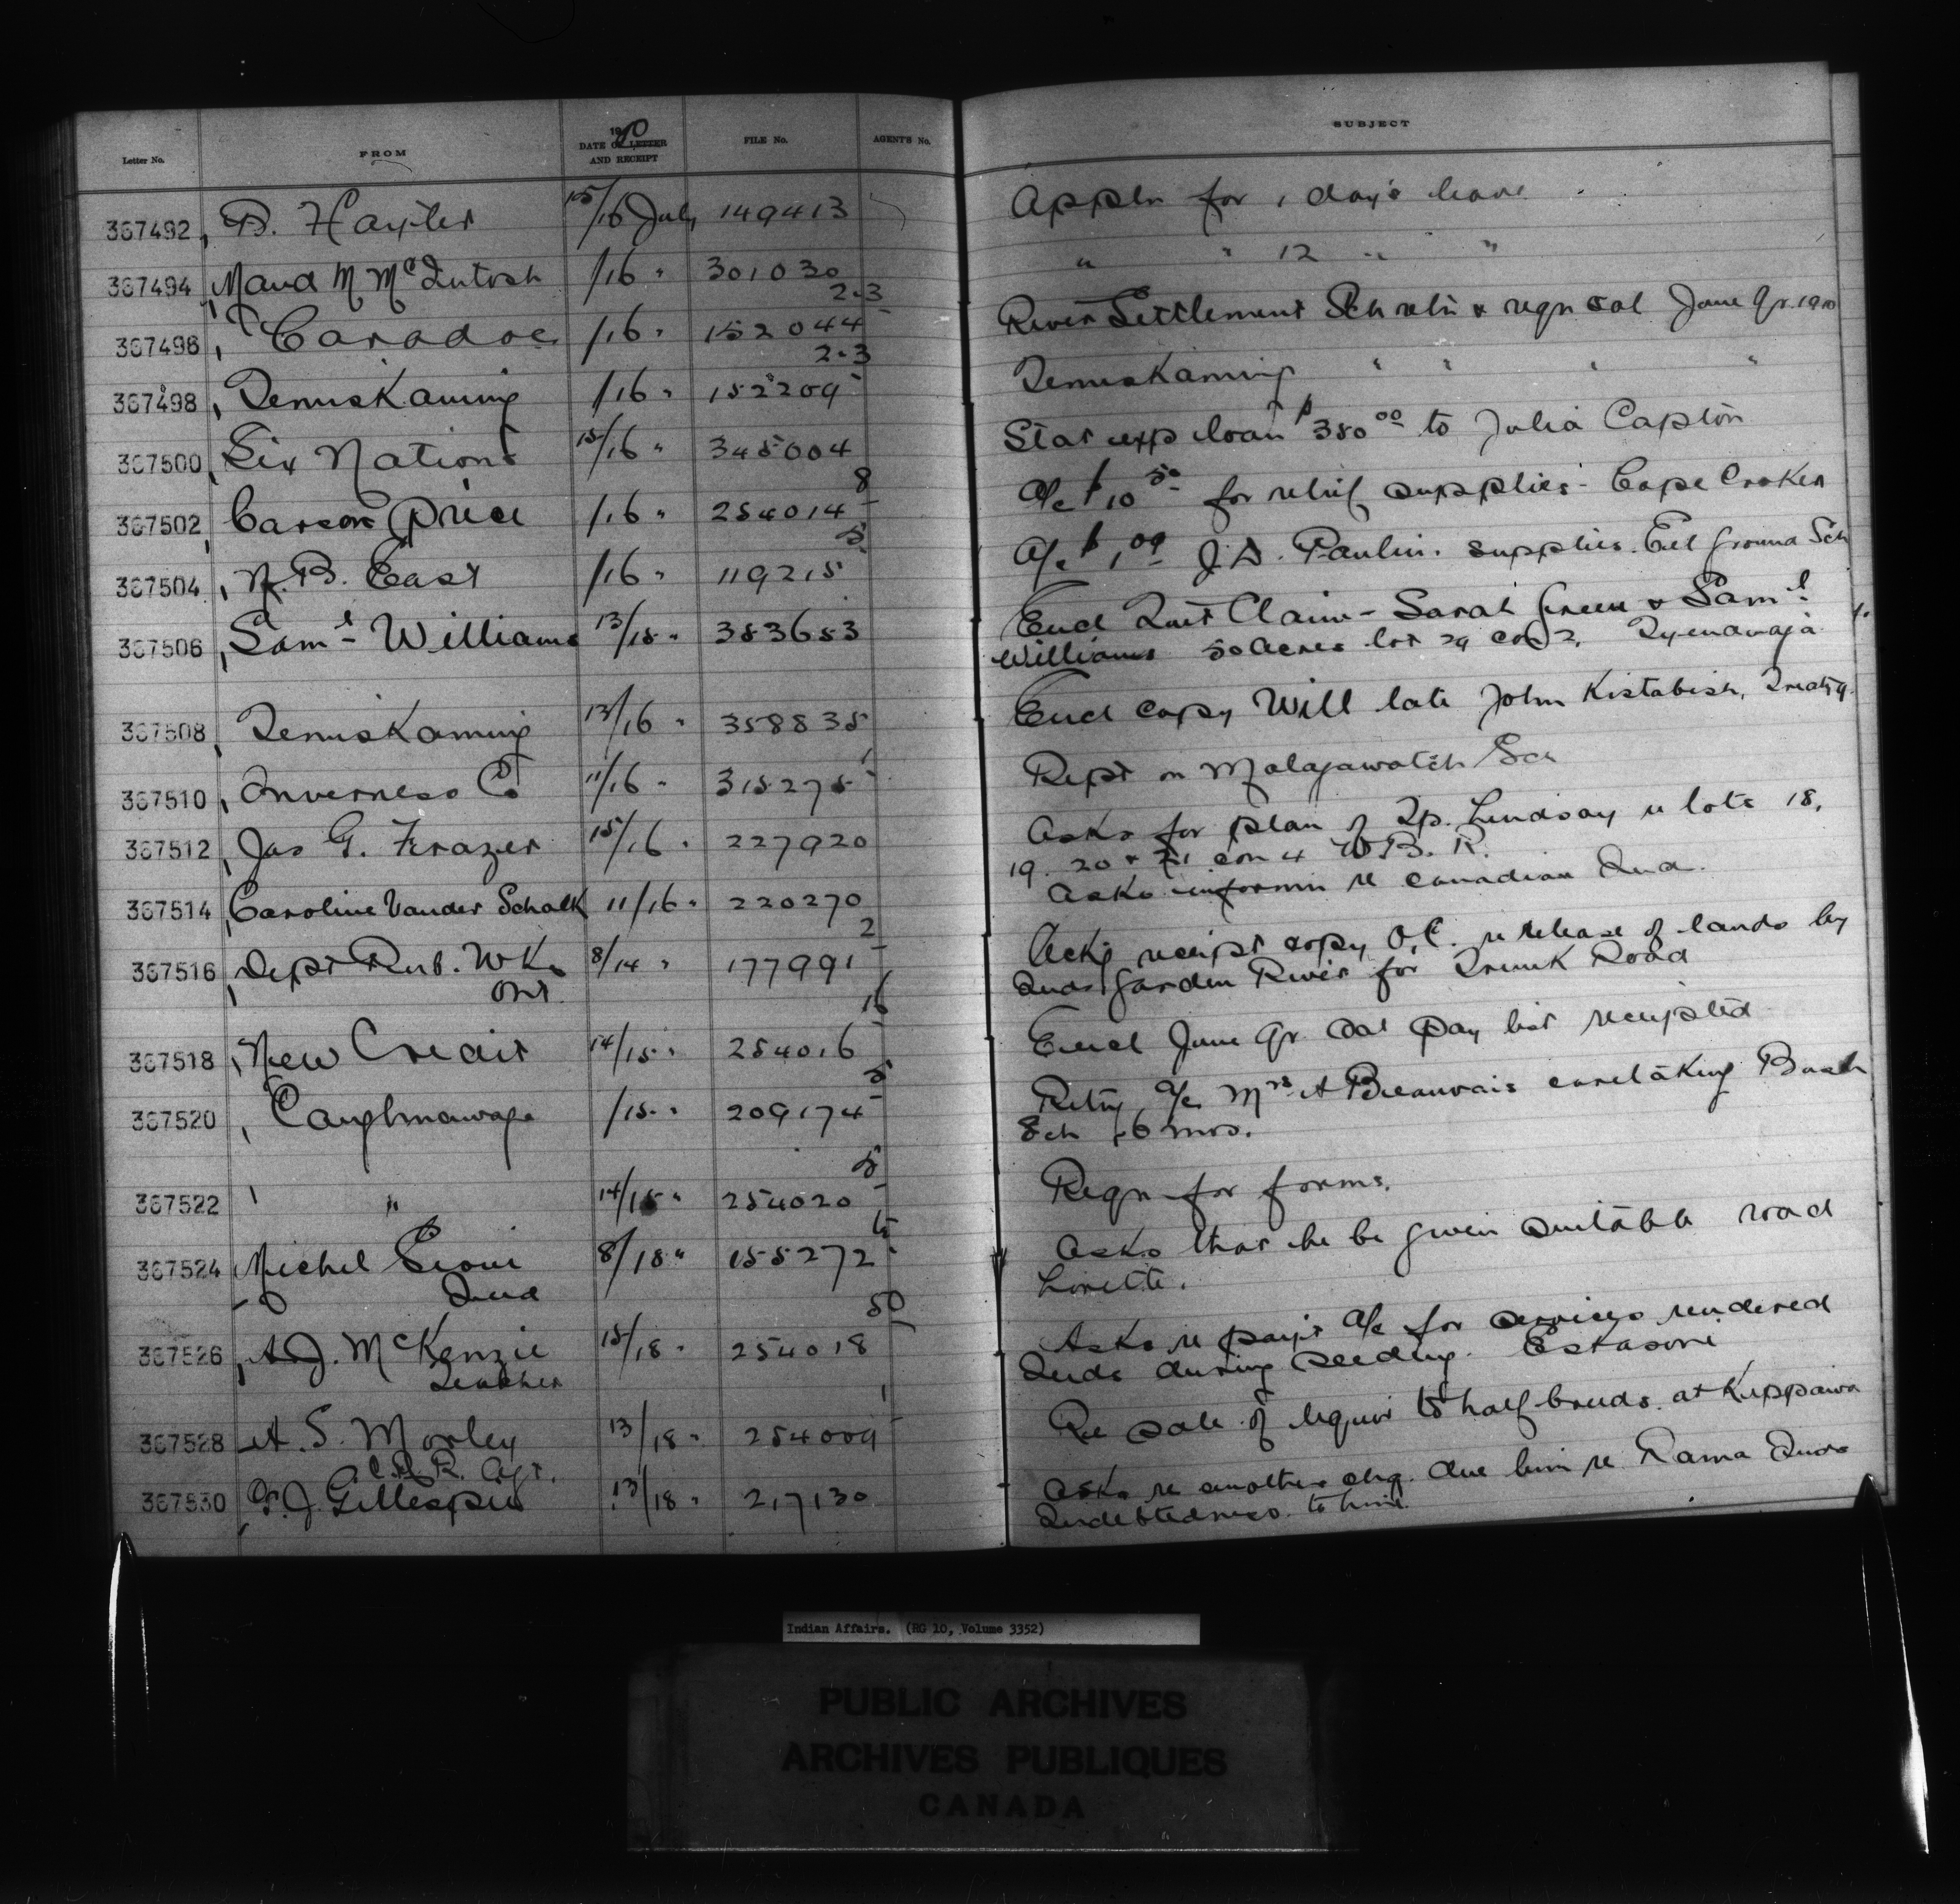 Letter No. FROM 1910 DATE OF LETTER AND RECEIPT FILE No. AGENT'S No. SUBJECT
367492 B. Hayter 15/16 July 149413 Appln for 1 day's leave
367494 Maud M McIntosh /16 " 301030 " " 12 " "
367496 Caradoc /16 " 152044 2-3 River Settlement Sch retn & reqn sal June Qr. 1910
367498 Temiskaming /16 " 152209 2-3 Temiskaming " " " "
367500 Six Nations 15/16 " 345004 Stat exp loan $350.00 to Julia Capton
367502 Carson Price /16 " 254014 8 A/c $10.50 for relief supplies - Cape Croker
367504 N. B. East /16 " 119215 5 A/c $1.09 J. D. Paulin. supplies. Eel Ground Sch
367506 Saml Williams 13/15 " 353653 Encl Quit Claim - Sarah Green & Saml
Williams 50 acres lot 29 con 2, Tyendinaga
367508 Temiskaming 13/16 " 358835 Encl copy Will late John Kistabish, Treaty 9.
367510 Inverness Co 11/16 " 315275 1 Rept on Malagawatch Sch
367512 Jas G. Frazer 15/16 " 227920 Asks for plan of Tp. Lindsay re lots 18,
19. 20 & 21 con 4 W. B. R.
367514 Caroline Vander Schalk 11/16 " 220270 Asks informn re Canadian Inds.
367516 Dept Pub. Wks Ont. 8/14 " 177991 2 Ackg receipt copy O.C. re release of lands by
Inds Garden River for Trunk Road
367518 New Credit 14/15 " 254016 16 Encl June Qr. Sal Pay list receipted
367520 Caughnawaga /15 " 209174 5 Retng a/c Mrs A Beauvais caretaking Bush
Sch 6 mos.
367522 " " 14/15 " 254020 5 Reqn for forms.
367524 Michel Sioui Ind 8/18 " 155272 Asks that he be given suitable road
Lorette.
367526 A J. McKenzie Teacher 15/18 " 254018 50 Asks re payt a/c for services rendered
Inds during seeding. Eskasoni
367528 A. S. Morley C.P.R. Agt. 13/18 " 254009 1 Re sale of liquor to half-breeds at Kippawa
367530 J. Gillespie 13/18 " 217130 Asks re another chq. due him re Rama Inds
Indebtedness to him.
Indian Affairs. (RG 10, Volume 3352)
PUBLIC ARCHIVES
ARCHIVES PUBLIQUES
CANADA